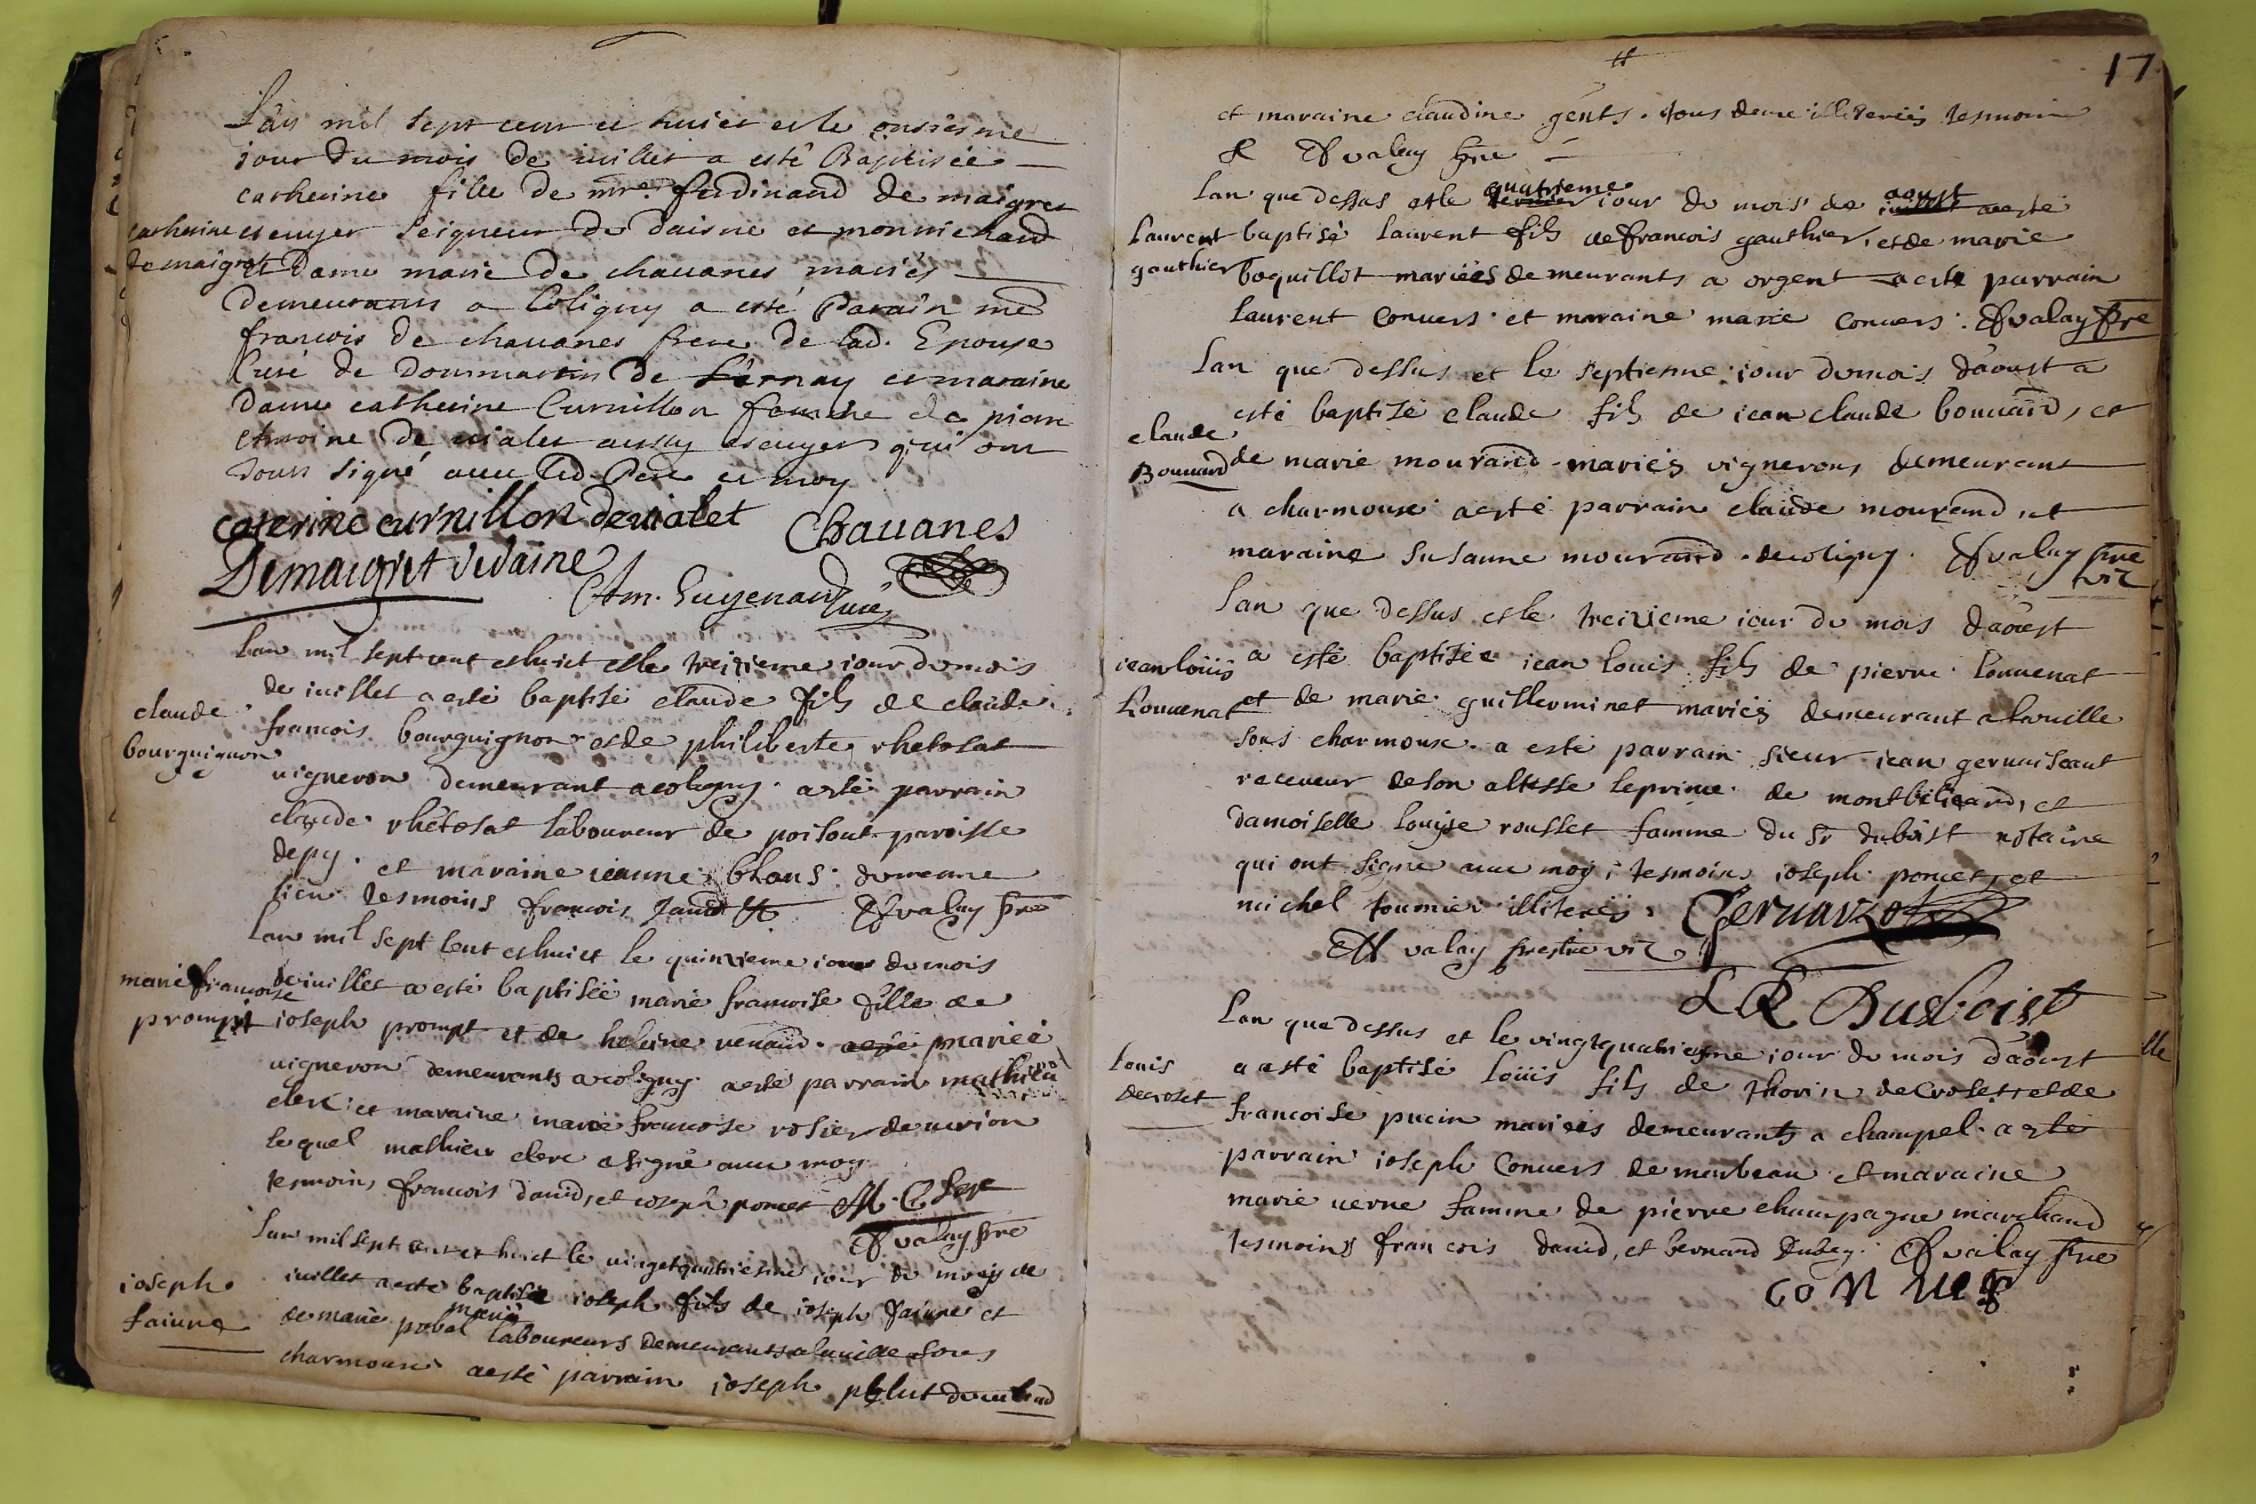 Lan mil sept cent et huict et le onsiesme
jour du mois de iuillet a esté Baptisée
catherine fille de mre. ferdinand de maigret
catherine
de maigret
escuyer seigneur de daisne et monnichand
et Dame marie de chauanes mariés
demeurants a Coligny a esté Parain
francois de chauanes frere de lad. Epouse
Curé de Dommartin De et maraine
Dame catherine Curnillon famme de
de uialet aussy escuyer qui ont
sous signé auec led. Pere et moy
caterine curnillon de uialet Chauanes
Demaigret de daine
Lan mil sept cent et huict et le treizieme iour du mois
de iuillet a esté baptisé claude fils de claude
claude
bourguignon
francois bourguignon et de philiberte rhetosat
uigneron demeurant a coligny. a esté parrain
claude rhétosat laboureur de poisout paroisse
de py. et maraine ieanne du mesme
lieu tesmoins francois Valay pre
Lan mil sept cent et huict le quinzieme iour du mois
marie francoise
prompt
de iuillet a esté baptisée marie francoise fille de
ioseph prompt et de heleine renaud. mariéé
uigneron demeurants a coligny. a esté parrain
clerc et maraine marie francoise rosier de
le quel mathieu clerc a signé auec moy
tesmoins francois dauid, et ioseph poncet M. Clerc
Valay pre
Lan mil sept cent et huict le uingtquatriesme iour du moys de
ioseph
faiure
iuillet a esté baptisé ioseph fils de ioseph faiure et
de marie mariés laboureurs demeurants a lauille sous
charmoux a esté parrain ioseph
17
et maraine claudine gents. tous deux illiterés tesmoin
Valay pre
Lan que dessus et le quatrieme iour du mois de aoust a esté
Laurent
gauthier
baptisé laurent fils de francois gauthier, et de marie
boquillot mariées demeurants a orgent a esté parrain
laurent conuers et maraine marie conuers. Valay pre
Lan que dessus et le septienne iour du mois d'aoust a
esté baptizé claude fils de iean claude bouuard, et
claude
Bouuard
de marie mourand mariés vignerons demeurant
a charmoux a esté parrain claude mourand et
maraine susanne mourand de coligny. Valay pre
vic
Lan que dessus et le treizieme iour du mois d'aoust
iean loüis
Louuenat
a esté baptizée iean louis fils de pierre louuenat
et de marie guillerminet mariés demeurant a lauille
sous charmoux. a esté parrain sieur iean geruaiseaut
receueur de son altesse le prince de montbeliard, et
damoiselle louyse rousset famme du Sr duboist notaire
qui ont signé auec moy, tesmoins ioseph poncet, et
michel tournier illiterés.
Valay prestre vic
L R Duboist
Lan que dessus et le vingtquatriesme iour du mois d'aoust
Louis
decroset
a esté baptisé loüis fils de thorin decroset, et de
francoise pucin mariés demeurants a champel. a esté
parrain ioseph conuers de marbeau et maraine
marie uerne famme de pierre champagne marchand
tesmoins francois dauid, et bernard dubey. Valay pre